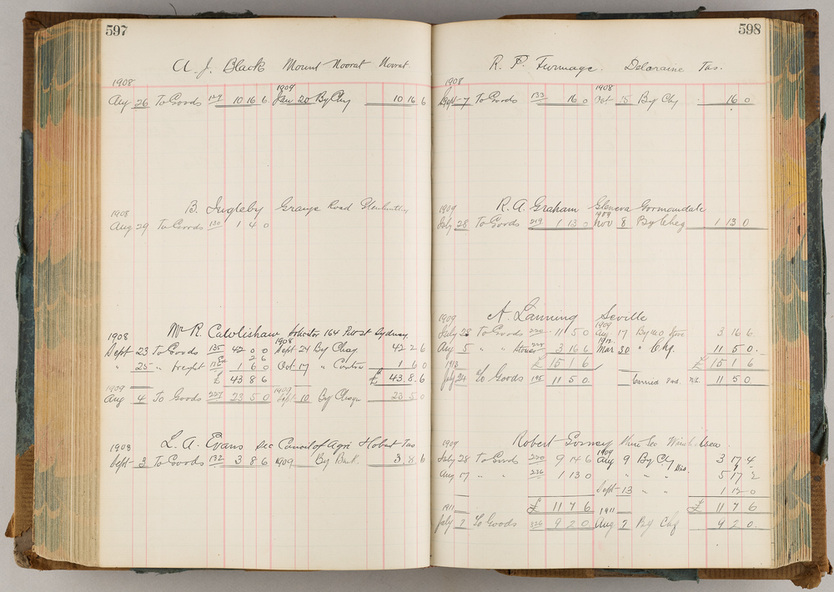 597
A. J. Black Mount Noorat Noorat
1908 1909
Aug 26 To Goods 129 10 16 6 Jan 20 By Chq 10 16 6
B. Ingleby Grange Road Glenhuntly
1908
Aug 29 To Goods 130 1 4 0
Mr R. Cawlishaw Solicitor 164 Pitt St Sydney
1908 1908
Sept 23 To Goods 135 42 0 0 Sept 24 By Chq 42 2 6
" 25 " freight 1 6 0 Oct 17 " Contra 1 6 0
£ 43 8 6 £ 43 8 6
1909 1909
Aug 4 To Goods 23 5 0 Sept 10 By Chq 23 5 0
L. A. Evans Sec Council of Agri Hobart Tas
1908
Sept 3 To Goods 132 3 8 6 1909 By Bal. 3 8 6
598
R. P. Furmage Deloraine Tas.
1908 1908
Sept 7 To Goods 133 16 0 Oct 15 By Chq 16 0
R. A. Graham Glencoe Gormandale
1909 1909
July 28 To Goods 219 1 13 0 Nov 8 By Cheq 1 13 0
A. Lanning Seville
1909 1909
July 28 To Goods 11 5 0 Aug 17 By 3 16 6
Aug 5 " " 3 16 6 Mar 30 " Chq. 11 5 0
£ 15 1 6 £ 15 1 6
July 24 To Goods 11 5 0 11 5 0
Robert
1909 1909
July 28 To Goods 220 9 14 6 Aug 9 By Chq 3 17 4
Aug 17 " " 226 1 13 0 Dis. 5 17 2
Sept 13 " " 1 12 0
£ 11 7 6 £ 11 7 6
1911 1911
July 2 To Goods 9 2 0 Aug 7 By Chq 9 2 0